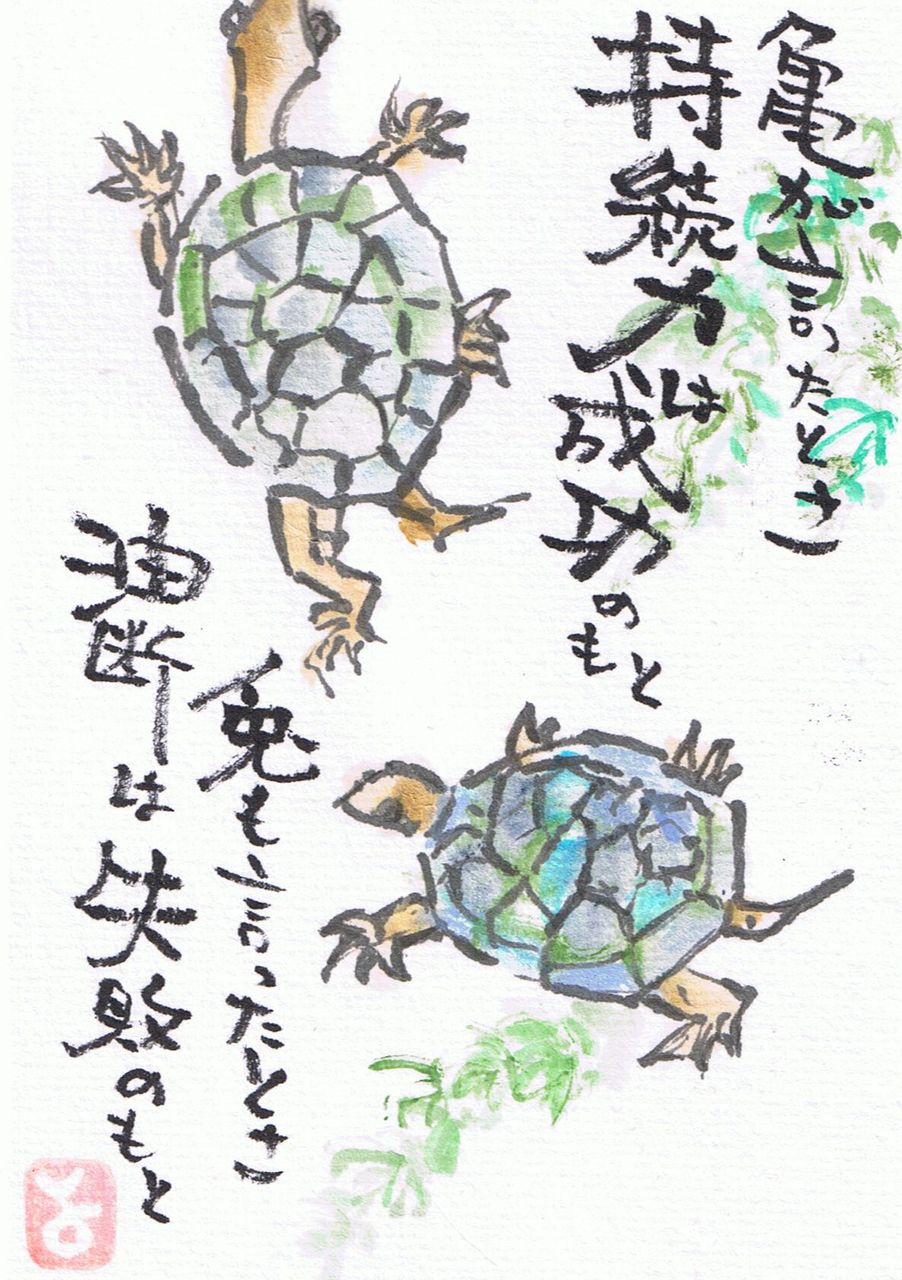 亀が言ったとさ
持続力は成功
のもと
兎も言ったとさ
油断は失敗のもと
とよ